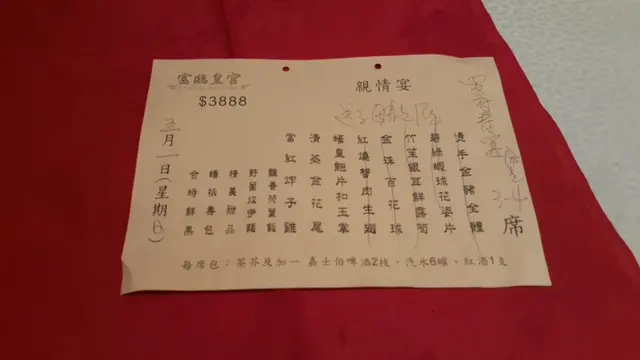 富臨皇宮
$3888
親情宴
燙手金豬全體
碧綠蝦球花姿片
竹笙銀耳鮮露筍
金珠百花球
紅燒蟹肉生翅
蠔皇鮑片扣玉掌
清蒸金花尾
當紅炸子雞
飄香荷葉飯
野菌炆伊麵
精美甜品
蟠桃壽包
合時鮮果
五月一日(星期日)
3-4席
每席包：茶芥及加一 嘉士伯啤酒2枝，汽水6罐，紅酒1支